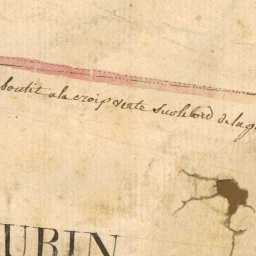 boutit a la croix verte sus le bord de la
URIN